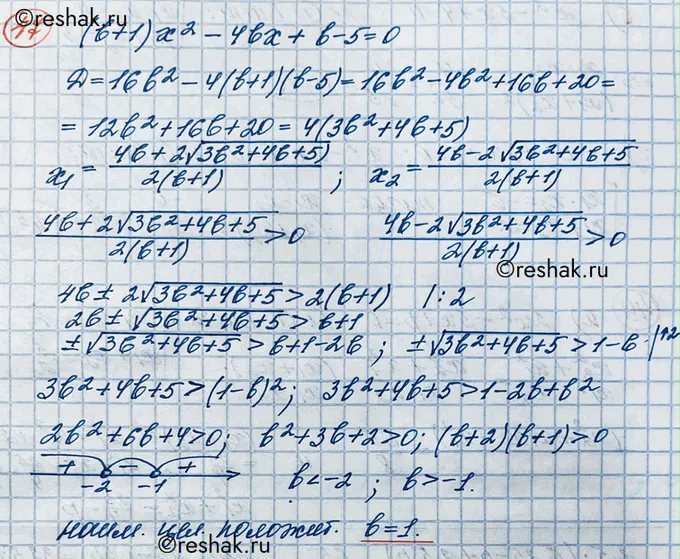 ©reshak.ru
17
(b+1)x² - 4bx + b-5=0
D=16b² - 4(b+1)(b-5)=16b²-4b²+16b+20=
=12b²+16b+20=4(3b²+4b+5)
x₁ = (4b+2√(3b²+4b+5))/(2(b+1)) ; x₂ = (4b-2√(3b²+4b+5))/(2(b+1))
(4b+2√(3b²+4b+5))/(2(b+1)) > 0 (4b-2√(3b²+4b+5))/(2(b+1)) > 0
©reshak.ru
4b ± 2√(3b²+4b+5) > 2(b+1) |:2
2b ± √(3b²+4b+5) > b+1
±√(3b²+4b+5) > b+1-2b ; ±√(3b²+4b+5) > 1-b |↑2
3b²+4b+5>(1-b)²; 3b²+4b+5>1-2b+b²
2b²+6b+4>0; b²+3b+2>0; (b+2)(b+1)>0
+ - +
-2 -1 b<-2 ; b>-1.
наим. цел. положит. b=1.
©reshak.ru